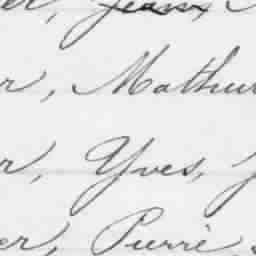 er, Jean
r, Mathur
r, Yves, J
er, Pierre